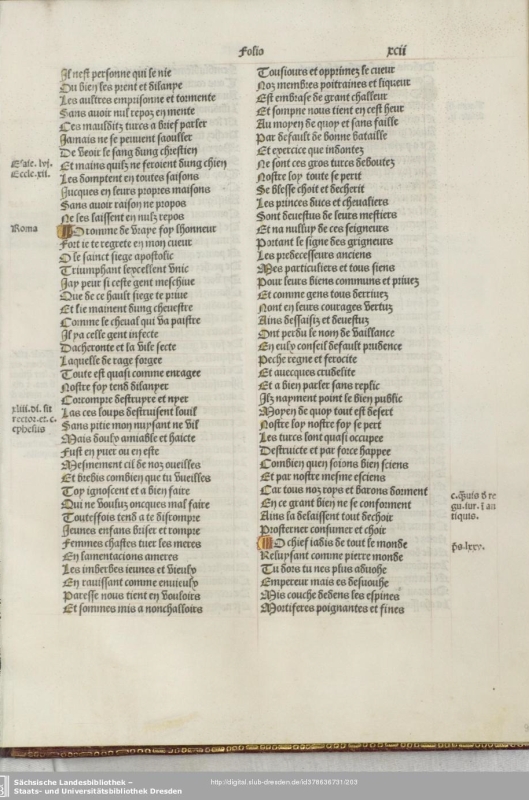 Folio xcii
Il nest personne qui le nie
Ou bien les prent et dilanye
Les aultres emprisonne et tormente
Sans avoir nul repoz en mente
Ces maulditz turcs a brief parler
Jamais ne se peuvent saouller
De veoir le sang dung chrestien
Esaie. lvj.
Eccle. xii.
Et mains quilz ne feroient dung chien
Les domptent en toutes saisons
Jucques en leurs propres maisons
Sans avoir raison ne propos
Ne les laissent en nulz repos
Roma
O romme de vraye foy lhonneur
Fort ie te regrete en mon cueur
O le sainct siege apostolic
Triumphant lexcellent vnic
Jay peur si ceste gent meschiue
Que de ce hault siege te priue
Et lie mainent dung cheuestre
Comme le cheual qui va paistre
Il ya celle gent infecte
Dacheronte et la vile secte
Laquelle de rage forgee
Toute est quasi comme enragee
Nostre foy tend dilanper
Corrompre destruyre et nyer
xliii. di. sit
rector. et. c.
ephesiis
Las ces loups destruisent louil
Sans pitie mon nuysant ne vil
Mais douly amiable et haicte
Fust en yuer ou en este
Mesmement cil de noz oueilles
Et brebis combien que tu vueilles
Toy ignoscent et a bien faire
Qui ne vouluz oncques mal faire
Toutesfois tend a te disrompre
Jeunes enfans briser et rompre
Femmes chastes tuer les meres
En lamentacions ameres
Les imberbes ieunes et vieulx
En rauissant comme enuieulx
Paresse nous tient en vouloirs
Et sommes mis a nonchalloirs
Tousiours et opprimez le cueur
Noz membres poitraines et liqueur
Est embrase de grant challeur
Et sompne nous tient en cest heur
Au moyen de quoy et sans faille
Par default de bonne bataille
Et exercice que indontez
Ne sont ces gros turcs deboutez
Nostre loy toute se perit
Se blesse choit et decherit
Les princes ducs et chevaliers
Sont deuestus de leurs mestiers
Et na nullup de ces seigneurs
Portant le signe des grigneurs
Les predecesseurs anciens
Mes particuliers et tous siens
Pour leurs biens communs et priuez
Et comme gens tous derriuez
Nont en leurs courages vertuz
Ains dessaisiz et deuestuz
Ont perdu le nom de vaillance
En eulx conseil default prudence
Peche regne et ferocite
Et auecques crudelite
Et a bien parler sans replic
Ilz nayment point le bien public
Moyen de quoy tout est desert
Nostre loy nostre foy se pert
Les turcs lont quasi occupee
Destruicte et par force happee
Combien quen soions bien sciens
Et par nostre mesme esciens
Car tous noz roys et barons dorment
En ce grant bien ne se conforment
Ains la delaissent tout dechoir
Prosterner consumer et choir
O chief iadis de tout le monde
ps. lxxv.
Reluysant comme pierre monde
Tu dors tu nes plus aduohe
Empereur mais es desuouhe
Mis couche dedens les espines
Mortiferes poignantes et fines
Sächsische Landesbibliothek –
Staats- und Universitätsbibliothek Dresden
http://digital.slub-dresden.de/id378636731/203